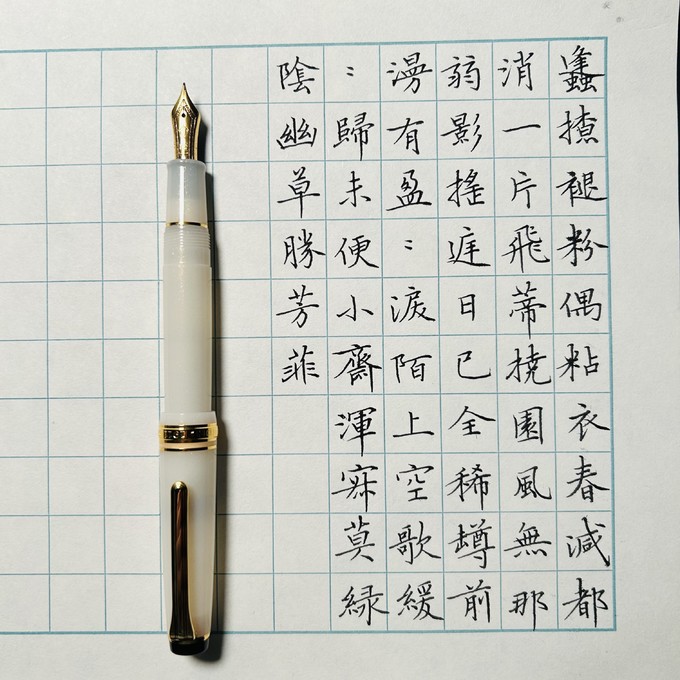 蠭撩褪粉偶粘衣春減都
消一片飛蒂撓園風無那
弱影搖庭日已全稀罇前
漫有盈：淚陌上空歌緩
：歸未便小齋渾寂莫緑
陰幽草勝芳菲